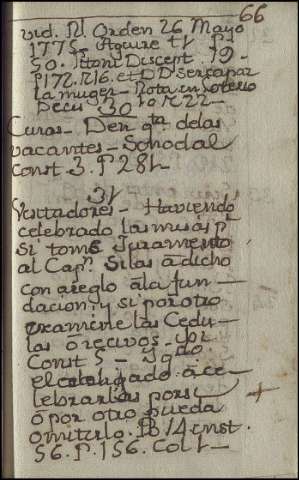 66
vid. Rl Orden 26 Mayo
1775- Aguirre tt
50. Ittoni Discept. 19-
P172. R16. et
la muger- Rota in
Decis 30 R22-
Curas- Den qta delas
vacantes- Sinodal
Const 3. P281-
31
Visitadores- Haviendo
celebrado las misas pr
si tome Juramento
al Capn. Silas a dicho
con areglo àla fun-
dacion, y si por otro
examine las Cedu-
las ò recivos- por
Const 5- 3gdo
el obligado àce-
lebrarlas porsi +
ò por otro pueda
omitirlo. 14 cnst.
56. P. 156. Col 1-